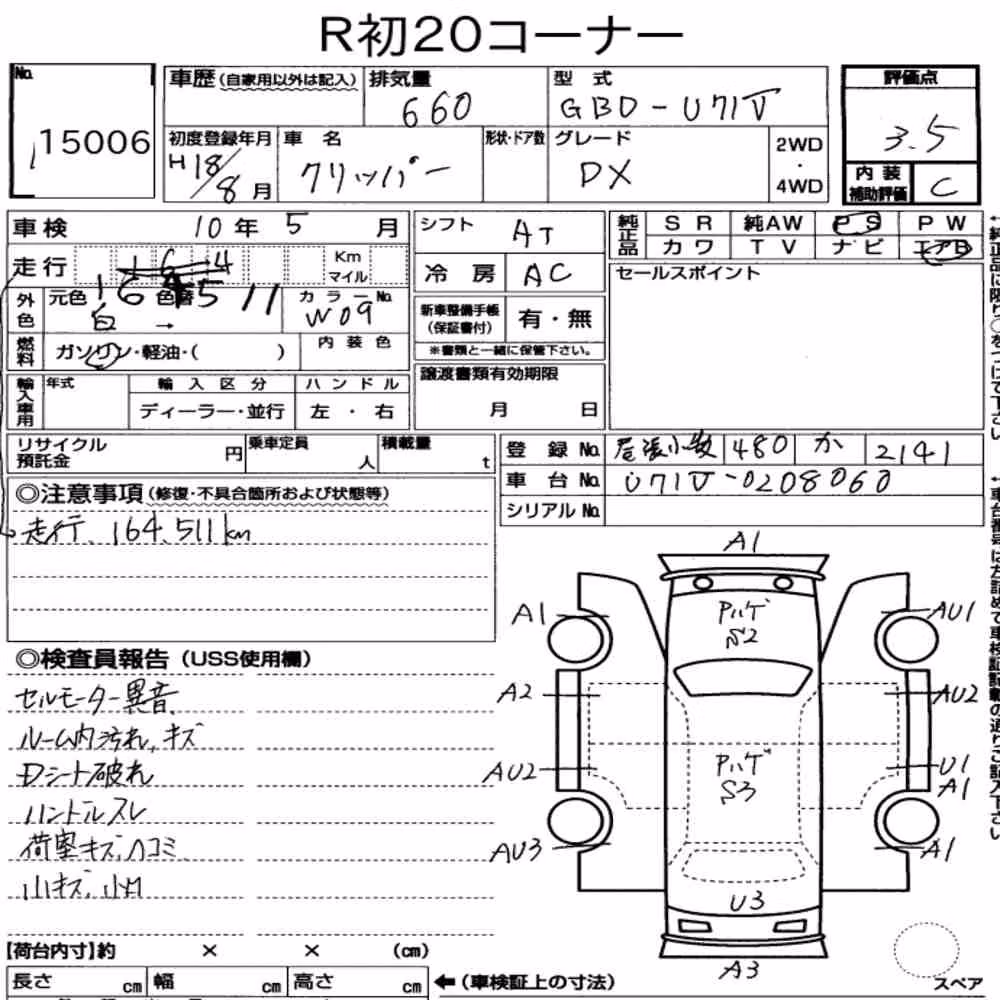 R初20コーナー
No.
15006
車歴 (自家用以外は記入)
排気量
660
型式
GBD-U71V
評価点
3.5
初度登録年月
H18/8月
車名
クリッパー
形状・ドア数
グレード
DX
2WD
・
4WD
内装
補助評価
C
車検 10年5月
シフト
AT
純正品
SR 純AW PS PW
カワ TV ナビ エアB
走行
164
Km
マイル
冷房
AC
セールスポイント
164511
外色
元色
白
色替
→
カラーNo.
W09
新車整備手帳
(保証書付)
有・無
※書類と一緒に保管下さい。
燃料
ガソリン・軽油・( )
内装色
輸入車用
年式
輸入区分
ディーラー・並行
ハンドル
左・右
譲渡書類有効期限
月 日
リサイクル
預託金
円
乗車定員
人
積載量
t
登録No. 尾張小牧 480 か 2141
車台No. U71V-0208060
シリアルNo.
◎注意事項 (修復・不具合箇所および状態等)
走行、164,511km
◎検査員報告 (USS使用欄)
セルモーター異音
ルーム内汚れ、キズ
Dシート破れ
ハンドルスレ
荷室キズ、ヘコミ
小キズ、小凹
A1
A1
Pハゲ
S2
AU1
A2
AU2
AU2
Pハゲ
S3
U1
A1
AU3
A1
U3
A3
スペア
【荷台内寸】約 × × (cm)
長さ cm 幅 cm 高さ cm
←(車検証上の寸法)
←純正品に限り○をつけて下さい
←車台番号は右詰めで車検証記載の通りご記入下さい